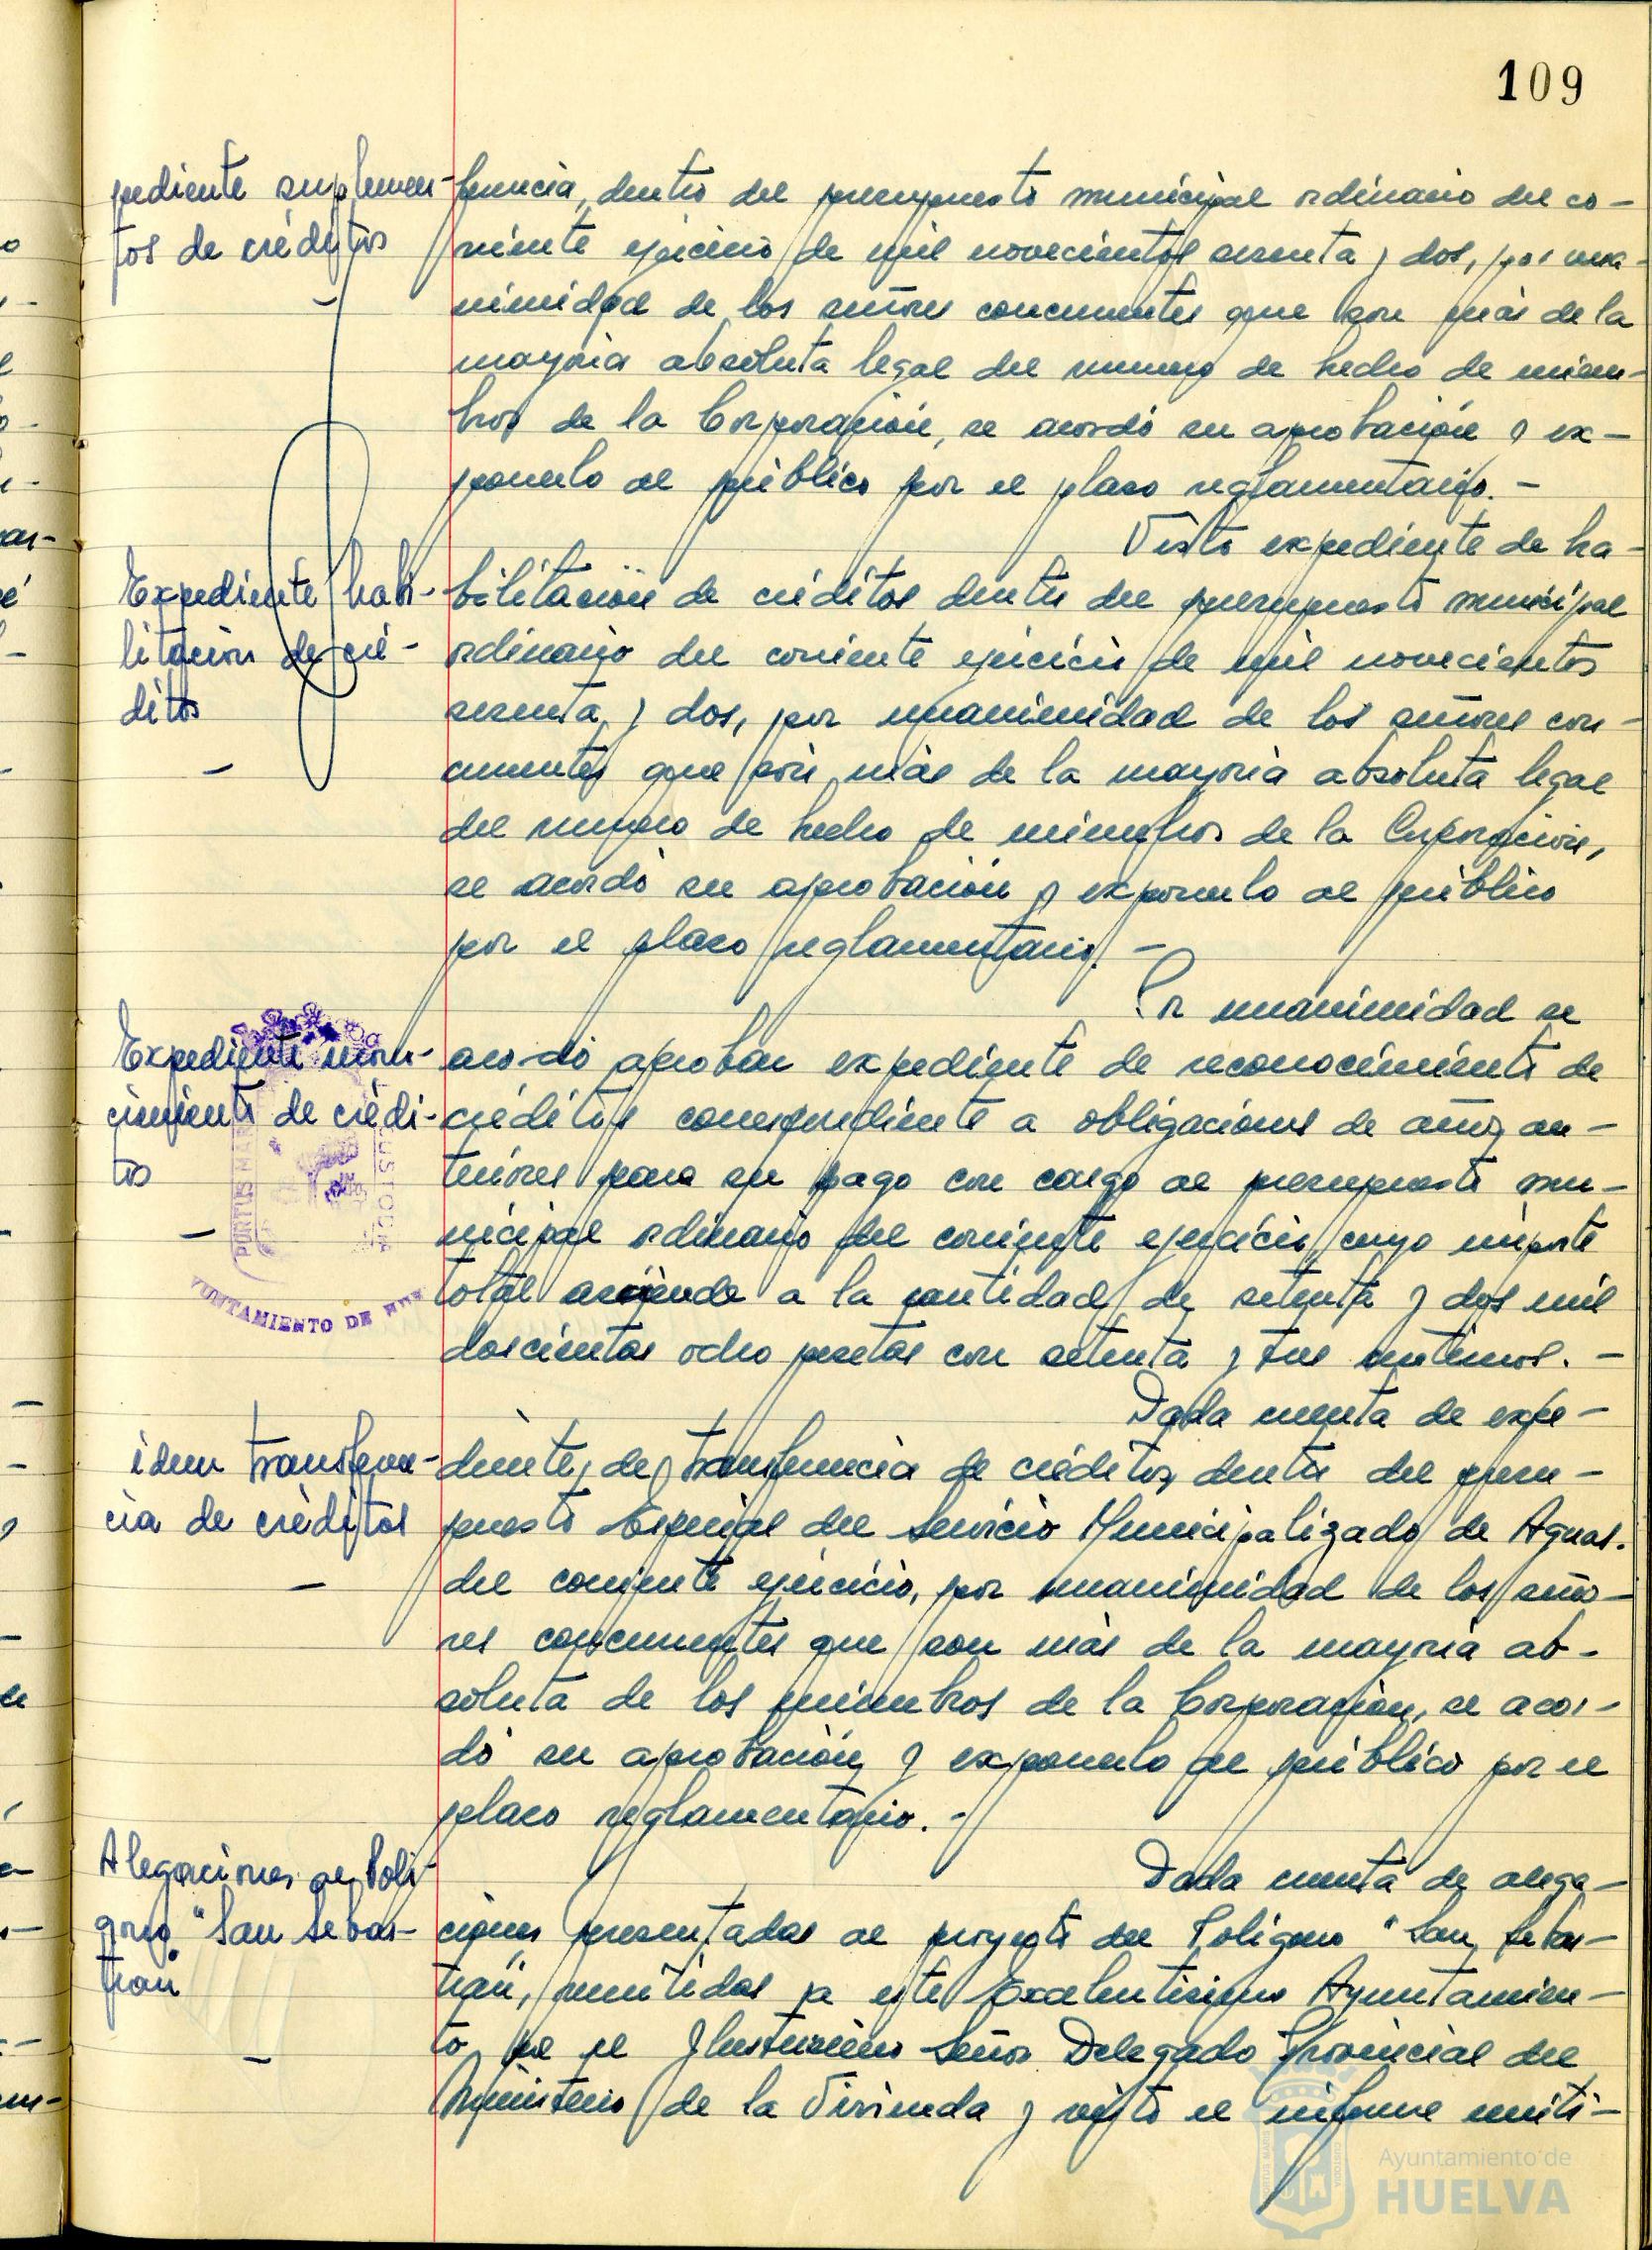 109
pediente suplemen-
tos de créditos
ferencia, dentro del presupuesto municipal ordinario del co-
rriente ejercicio de mil novecientos sesenta y dos, por una-
nimidad de los señores concurrentes que son más de la
mayoría absoluta legal del numero de hecho de miem-
bros de la Corporación, se acordó su aprobación y ex-
ponerlo al público por el plazo reglamentario. -
Visto expediente de ha-
Expediente habi-
litación de cré-
ditos
bilitación de créditos dentro del presupuesto municipal
ordinario del corriente ejercicio de mil novecientos
sesenta y dos, por unanimidad de los señores con-
currentes que son más de la mayoría absoluta legal
del numero de hecho de miembros de la Corporación,
se acordó su aprobación y exponerlo al público
por el plazo reglamentario. -
Por unanimidad se
Expediente recono-
cimiento de crédi-
tos
acordó aprobar expediente de reconocimiento de
créditos correspondiente a obligaciones de años an-
teriores para su pago con cargo al presupuesto mu-
nicipal ordinario del corriente ejercicio cuyo importe
total asciende a la cantidad de setenta y dos mil
doscientas ocho pesetas con setenta y tres centimos. -
PORTUS MARIS
CUSTODIA
AYUNTAMIENTO DE HUE
Dada cuenta de expe-
idem transferen-
cia de créditos
diente de transferencia de créditos dentro del presu-
puesto Especial del Servicio Municipalizado de Aguas.
del corriente ejercicio, por unanimidad de los seño-
res concurrentes que son más de la mayoría ab-
soluta de los miembros de la Corporación, se acor-
dó su aprobación y exponerlo al público por el
plazo reglamentario. -
Dada cuenta de alega-
Alegaciones al Polí-
gono "San Sebas-
tian"
ciones presentadas al proyecto del Polígono "San Sebas-
tian", remitidas a este Excelentisimo Ayuntamien-
to por el Ilustrisimo Señor Delegado Provincial del
Ministerio de la Vivienda y visto el informe emiti-
Ayuntamiento de
HUELVA